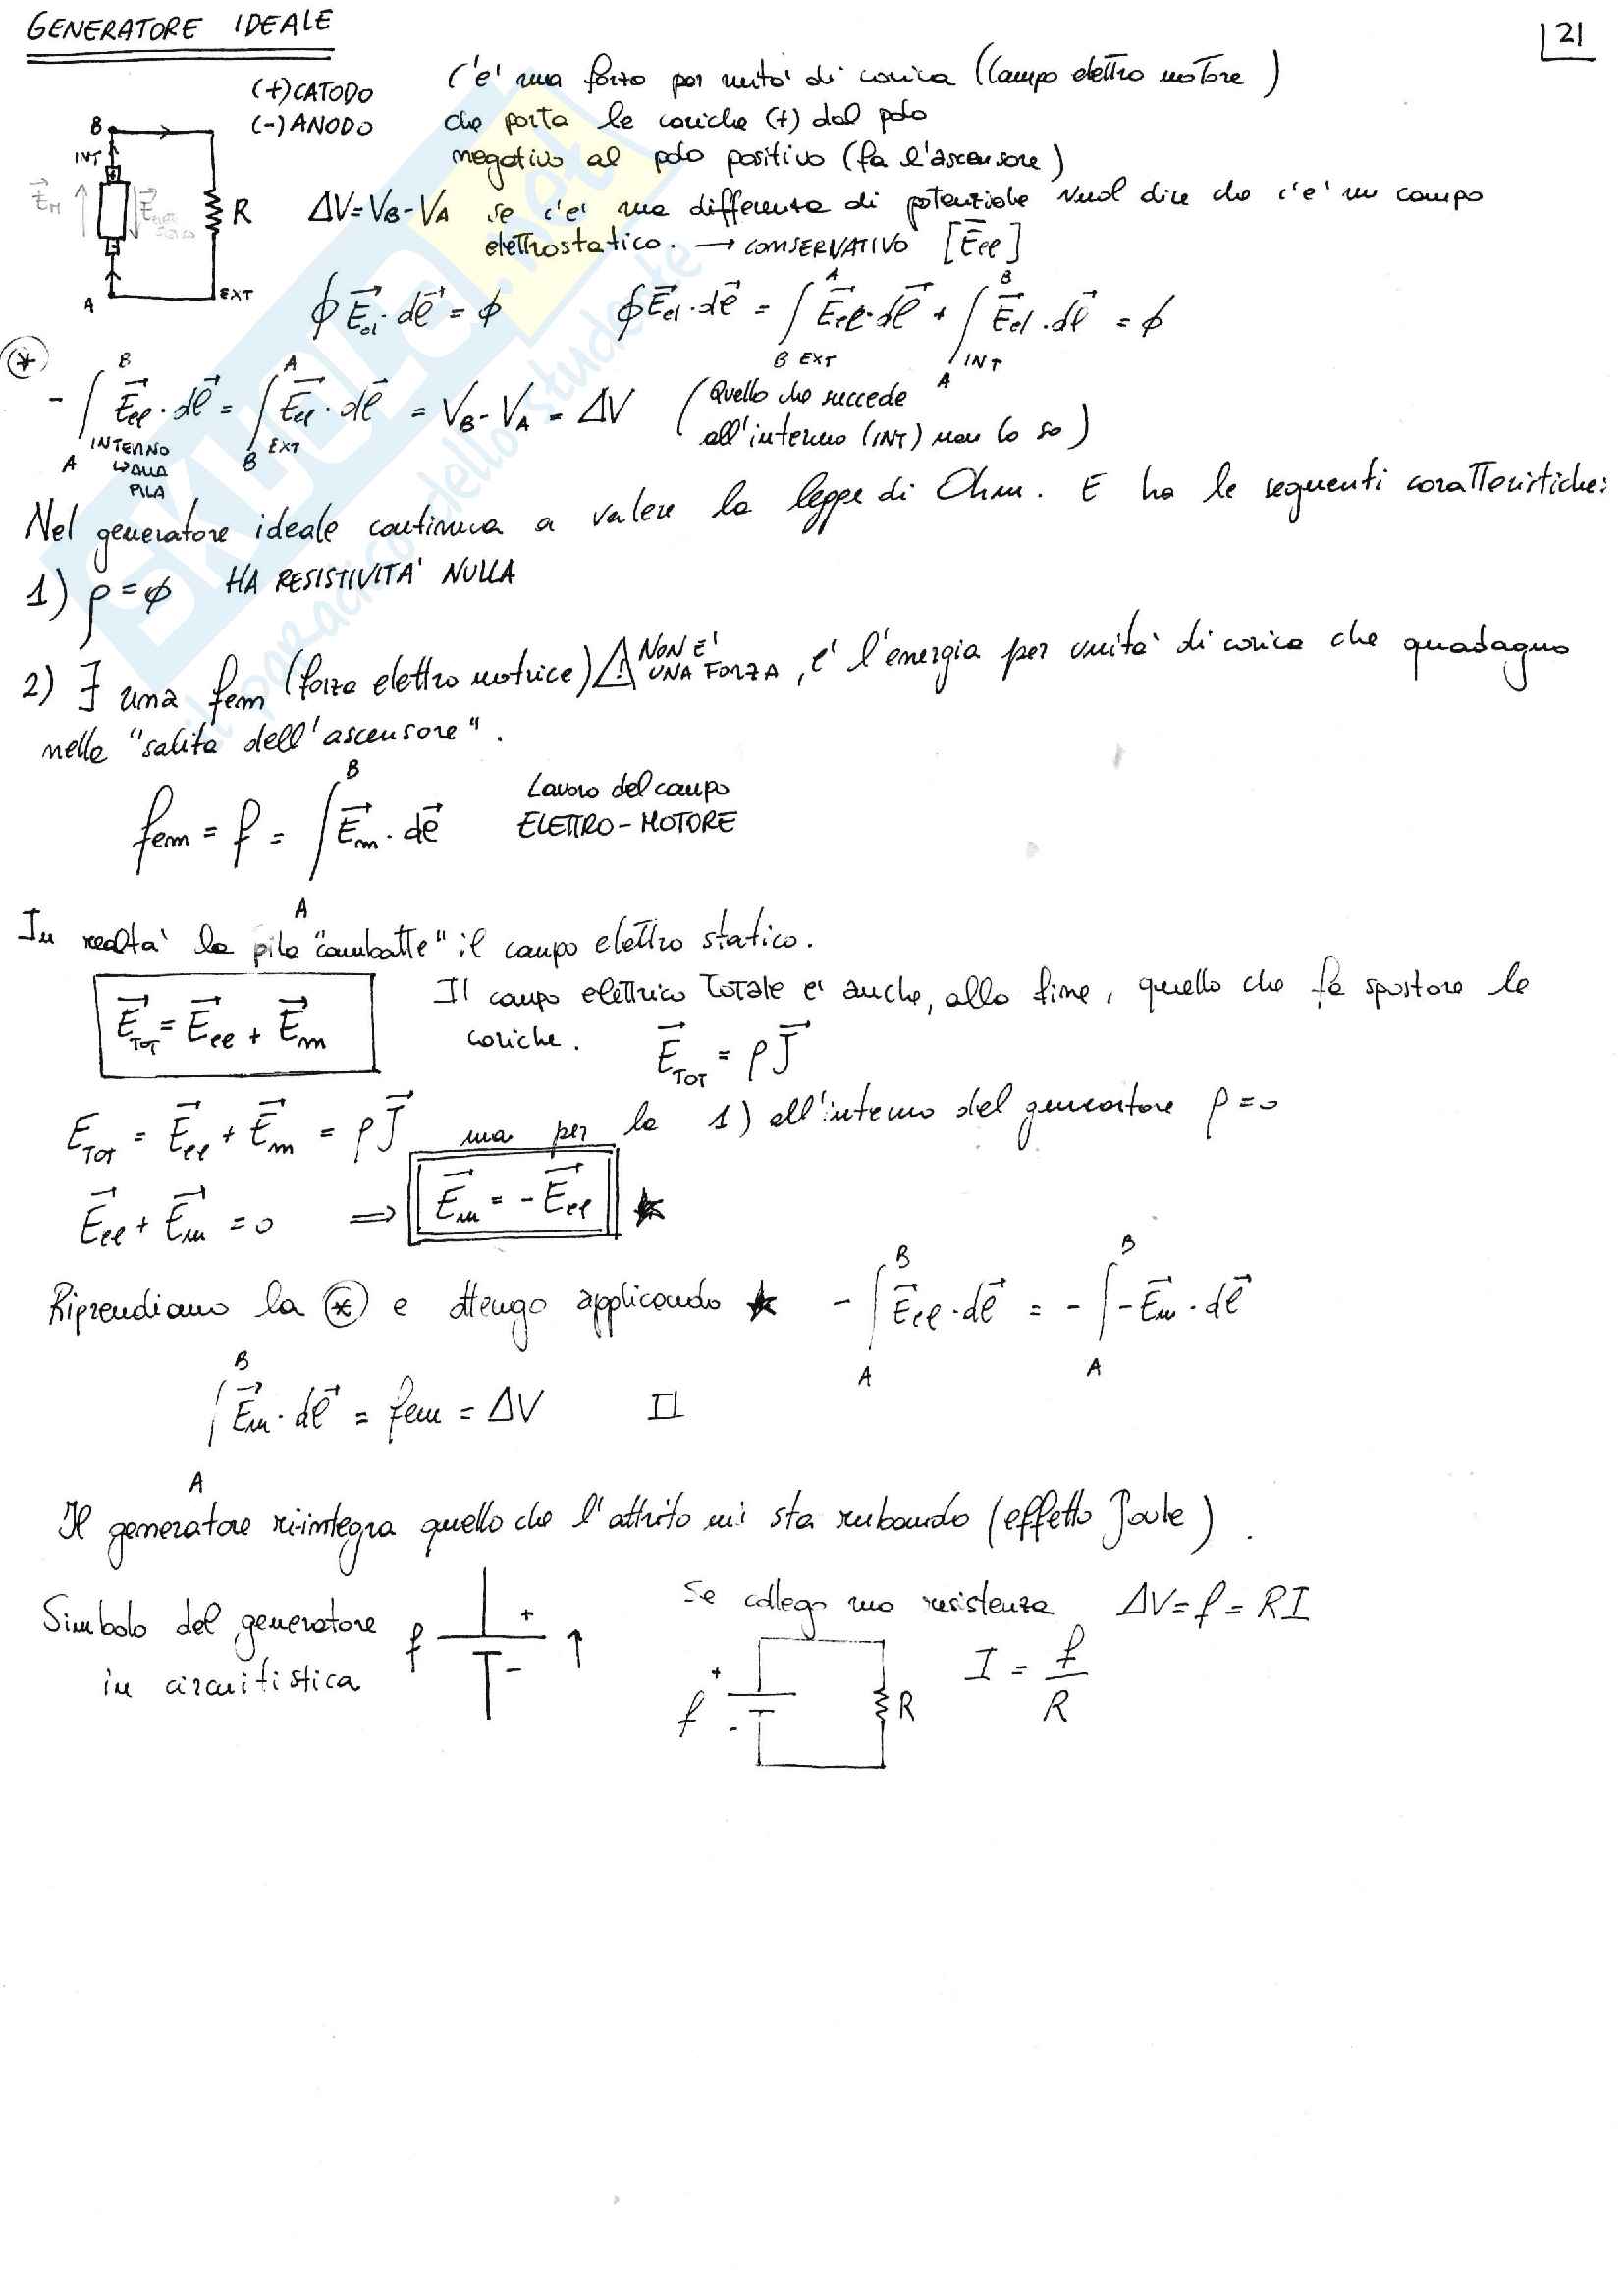 GENERATORE IDEALE
21
(+) CATODO
(-) ANODO
C'è una forza per unità di carica (campo elettro motore)
che porta le cariche (+) dal polo
negativo al polo positivo (fa l'ascensore)
B
INT
+
E⃗_M
R
-
A
EXT
ΔV = V_B - V_A se c'è una differenza di potenziale vuol dire che c'è un campo
elettrostatico. → CONSERVATIVO [E⃗_el]
∮ E⃗_el · dl⃗ = ϕ ∮ E⃗_el · dl⃗ = ∫_{B EXT}^{A} E⃗_el · dl⃗ + ∫_{A INT}^{B} E⃗_el · dl⃗ = ϕ
(*) - ∫_{A}^{B} E⃗_el · dl⃗ = ∫_{B EXT}^{A} E⃗_el · dl⃗ = V_B - V_A = ΔV (Quello che succede
all'interno (INT) non lo so)
INTERNO
DALLA
PILA
Nel generatore ideale continua a valere la legge di Ohm. E ha le seguenti caratteristiche:
1) ρ = ϕ HA RESISTIVITA' NULLA
2) ∃ una fem (forza elettro motrice) ⚠ NON E' UNA FORZA, e' l'energia per unità di carica che guadagno
nella "salita dell'ascensore".
fem = f = ∫_{A}^{B} E⃗_m · dl⃗ Lavoro del campo
ELETTRO-MOTORE
In realtà la pila "combatte" il campo elettro statico.
E⃗_TOT = E⃗_el + E⃗_m Il campo elettrico totale e' anche, alla fine, quello che fa spostare le
cariche. E⃗_TOT = ρJ⃗
E_TOT = E⃗_el + E⃗_m = ρJ⃗ ma per la 1) all'interno del generatore ρ = 0
E⃗_el + E⃗_m = 0 ⇒ E⃗_m = - E⃗_el ★
Riprendiamo la (*) e ottengo applicando ★ - ∫_{A}^{B} E⃗_el · dl⃗ = - ∫_{A}^{B} - E⃗_m · dl⃗
∫_{A}^{B} E⃗_m · dl⃗ = fem = ΔV □
Il generatore re-integra quello che l'attrito mi sta rubando (effetto Joule).
Simbolo del generatore
in circuitistica
f + ↑ -
Se collego una resistenza ΔV = f = RI
f + - R
I = f/R
skuola.net
il paradiso dello studente